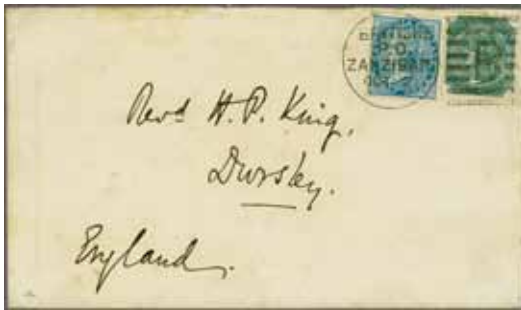 BRITISH
P.O.
ZANZIBAR
B
Revd H. P. King,
Dursley.
England.